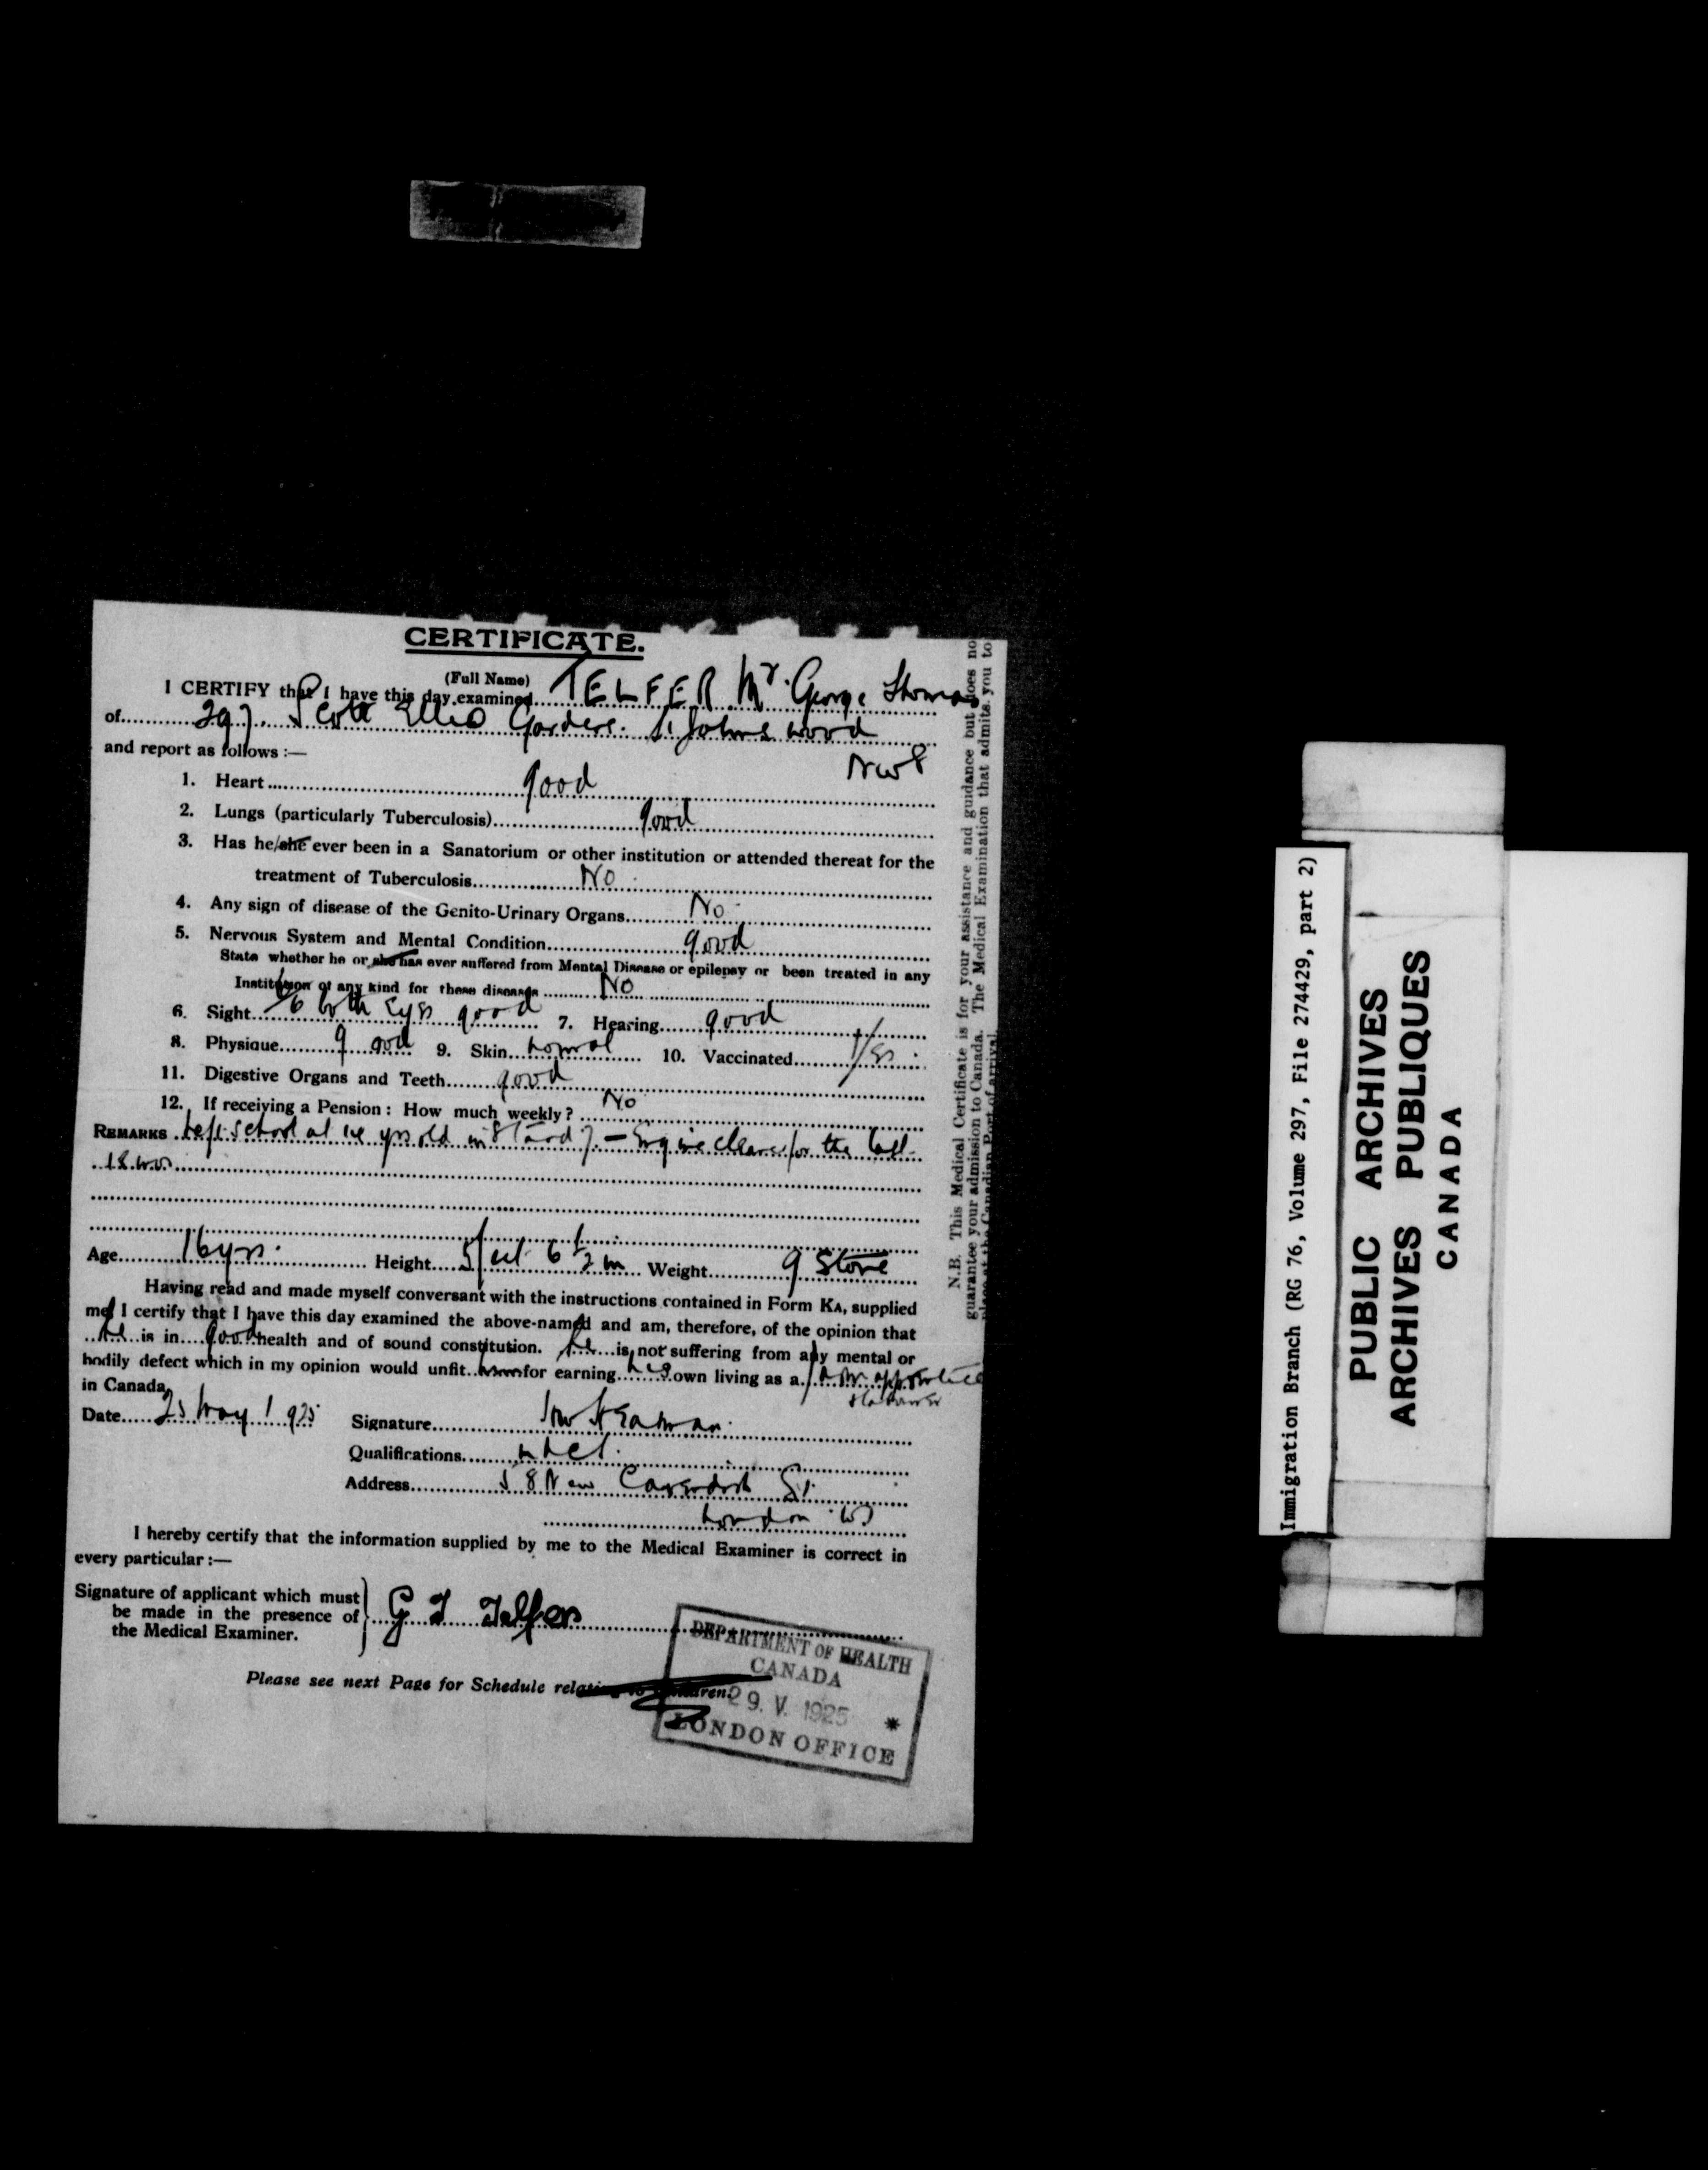 CERTIFICATE.
(Full Name)
I CERTIFY that I have this day examined TELFER Mr. George Thomas
of 297. Scott Ellis Gardens. St Johns Wood
NW8
and report as follows :—
1. Heart good
2. Lungs (particularly Tuberculosis) good
3. Has he/she ever been in a Sanatorium or other institution or attended thereat for the
treatment of Tuberculosis No
4. Any sign of disease of the Genito-Urinary Organs No
5. Nervous System and Mental Condition good
State whether he or she has ever suffered from Mental Disease or epilepsy or been treated in any
Institution of any kind for these diseases No
6. Sight 6/6 both Eyes good 7. Hearing good
8. Physique good 9. Skin normal 10. Vaccinated Yes
11. Digestive Organs and Teeth good
12. If receiving a Pension : How much weekly ? No
REMARKS Left school at 14 yrs old in Stand 7. — Engine cleaner for the last
18 mos
Age 16 yrs. Height 5 feet 6 1/2 in Weight 9 Stone
Having read and made myself conversant with the instructions contained in Form KA, supplied
me, I certify that I have this day examined the above-named and am, therefore, of the opinion that
he is in good health and of sound constitution. he is not suffering from any mental or
bodily defect which in my opinion would unfit him for earning his own living as a farm apprentice
in Canada
Date 25 May 1925 Signature
Qualifications
Address 58 New Cavendish St.
London W1
I hereby certify that the information supplied by me to the Medical Examiner is correct in
every particular :—
Signature of applicant which must
be made in the presence of
the Medical Examiner.
G T Telfer
Please see next Page for Schedule relating to Children.
DEPARTMENT OF HEALTH
CANADA
29. V. 1925
LONDON OFFICE
N.B. This Medical Certificate is for your assistance and guidance but does no
guarantee your admission to Canada. The Medical Examination that admits you to
place at the Canadian Port of arrival.
Immigration Branch (RG 76, Volume 297, File 274429, part 2)
PUBLIC ARCHIVES
ARCHIVES PUBLIQUES
CANADA